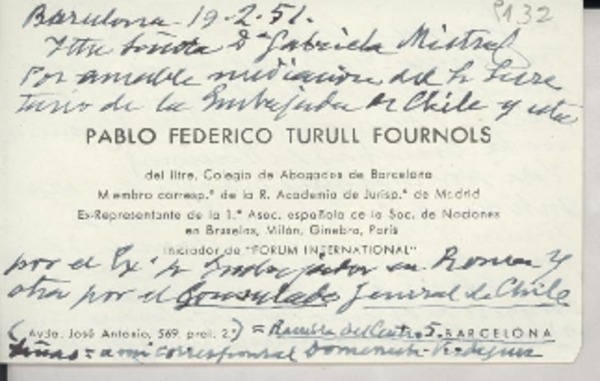 Barcelona 19-2-51.
P132
Iltre Señora Dª Gabriela Mistral
Por amable mediacion del Sr Secre
tario de la Embajada de Chile y esta
PABLO FEDERICO TURULL FOURNOLS
del Iltre. Colegio de Abogados de Barcelona
Miembro corresp.º de la R. Academia de Jurisp.ª de Madrid
Ex-Representante de la 1.ª Asoc. española de la Soc. de Naciones
en Bruselas, Milán, Ginebra, París
Iniciador de "FORUM INTERNATIONAL"
por el Exº Sr Embajador en Roma y
otra por el Consulado General de Chile
(Avda. José Antonio, 569, pral. 2.ª) = Rambla del Centro 5. BARCELONA
= a mi corresponsal Domenech